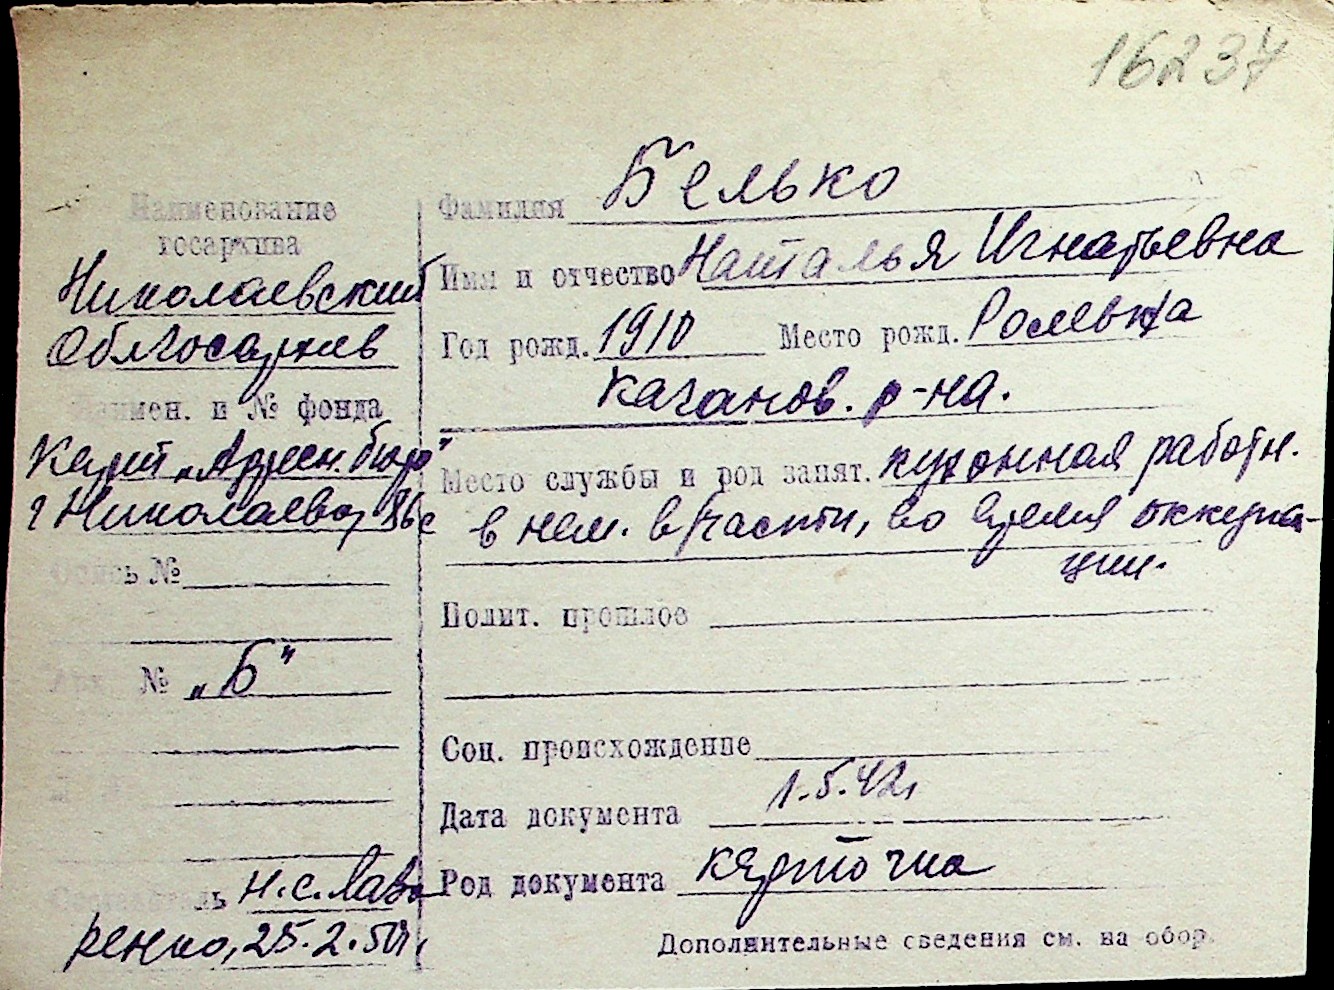 16237
Наименование
госархива
Николаевский
Облгосархив
Наимен. и № фонда
Карт „Адресн. бюро"
г Николаева,
Опись №
Арх. № „Б"
Составитель Н.С. Лав
ренко, 25.2.50 г.
Фамилия Белько
Имя и отчество Наталья Игнатьевна
Год рожд. 1910 Место рожд.
качанов. р-на.
Место службы и род занят. кухонная работн.
в нем. в/части, во время оккупа-
ции.
Полит. прошлое
Соц. происхождение
Дата документа 1.5.42г
Род документа карточка
Дополнительные сведения см. на обор.